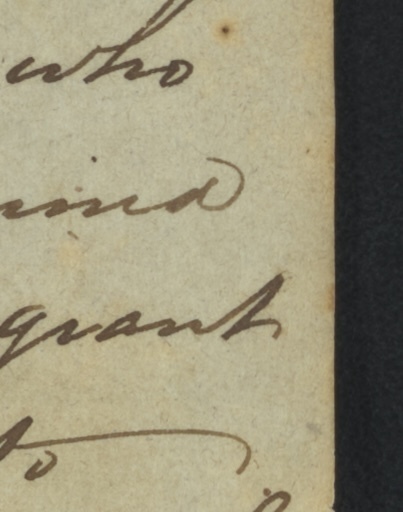 who
mind
grant
to